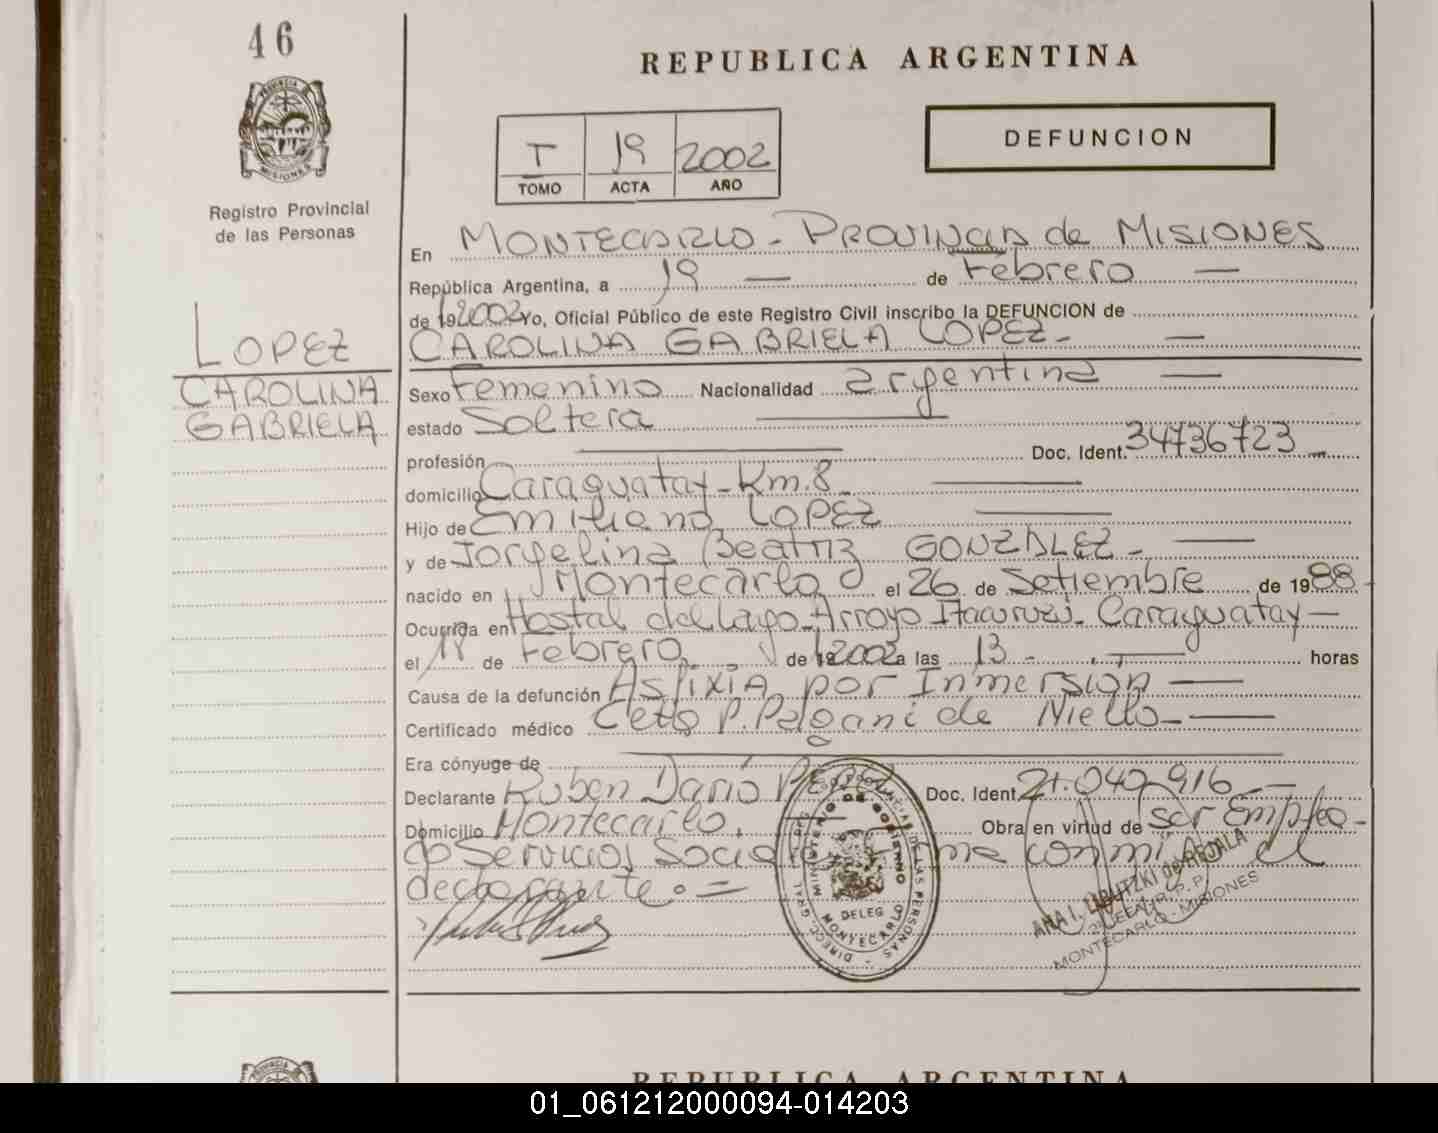 46
REPUBLICA ARGENTINA
PROVINCIA DE
MISIONES
T 19 2002
TOMO ACTA AÑO
DEFUNCION
Registro Provincial
de las Personas
En MONTECARLO - PROVINCIA de MISIONES
República Argentina, a 19 — de Febrero —
de 192002 Yo, Oficial Público de este Registro Civil inscribo la DEFUNCION de
LOPEZ
CAROLINA GABRIELA LOPEZ. —
CAROLINA
GABRIELA
Sexo Femenino Nacionalidad argentina —
estado Soltera —
profesión — Doc. Ident. 34736723
domicilio Caraguatay - Km. 8 —
Hijo de Emiliano LOPEZ —
y de Jorgelina Beatriz GONZALEZ - —
nacido en Montecarlo el 26 de Setiembre de 1988-
Ocurrida en Hostal del Lago - Arroyo Itacuruzú - Caraguatay —
el 18 de Febrero de 192002 a las 13 - . , — horas
Causa de la defunción Asfixia por Inmersion —
Certificado médico P. Pelgani de Niello - —
Era cónyuge de —
Declarante Ruben Darío Doc. Ident. 21.042.916 - —
Domicilio Montecarlo, — Obra en virtud de ser Emplea-
do Servicios Social conmigo el
declarante. =
DIRECC. GRAL. REG. PROVINCIAL DE LAS PERSONAS
MINISTERIO DE GOBIERNO
DELEG
MONTECARLO
ANA I. de AYALA
R. P. P.
MONTECARLO - MISIONES
REPUBLICA ARGENTINA
01_061212000094-014203